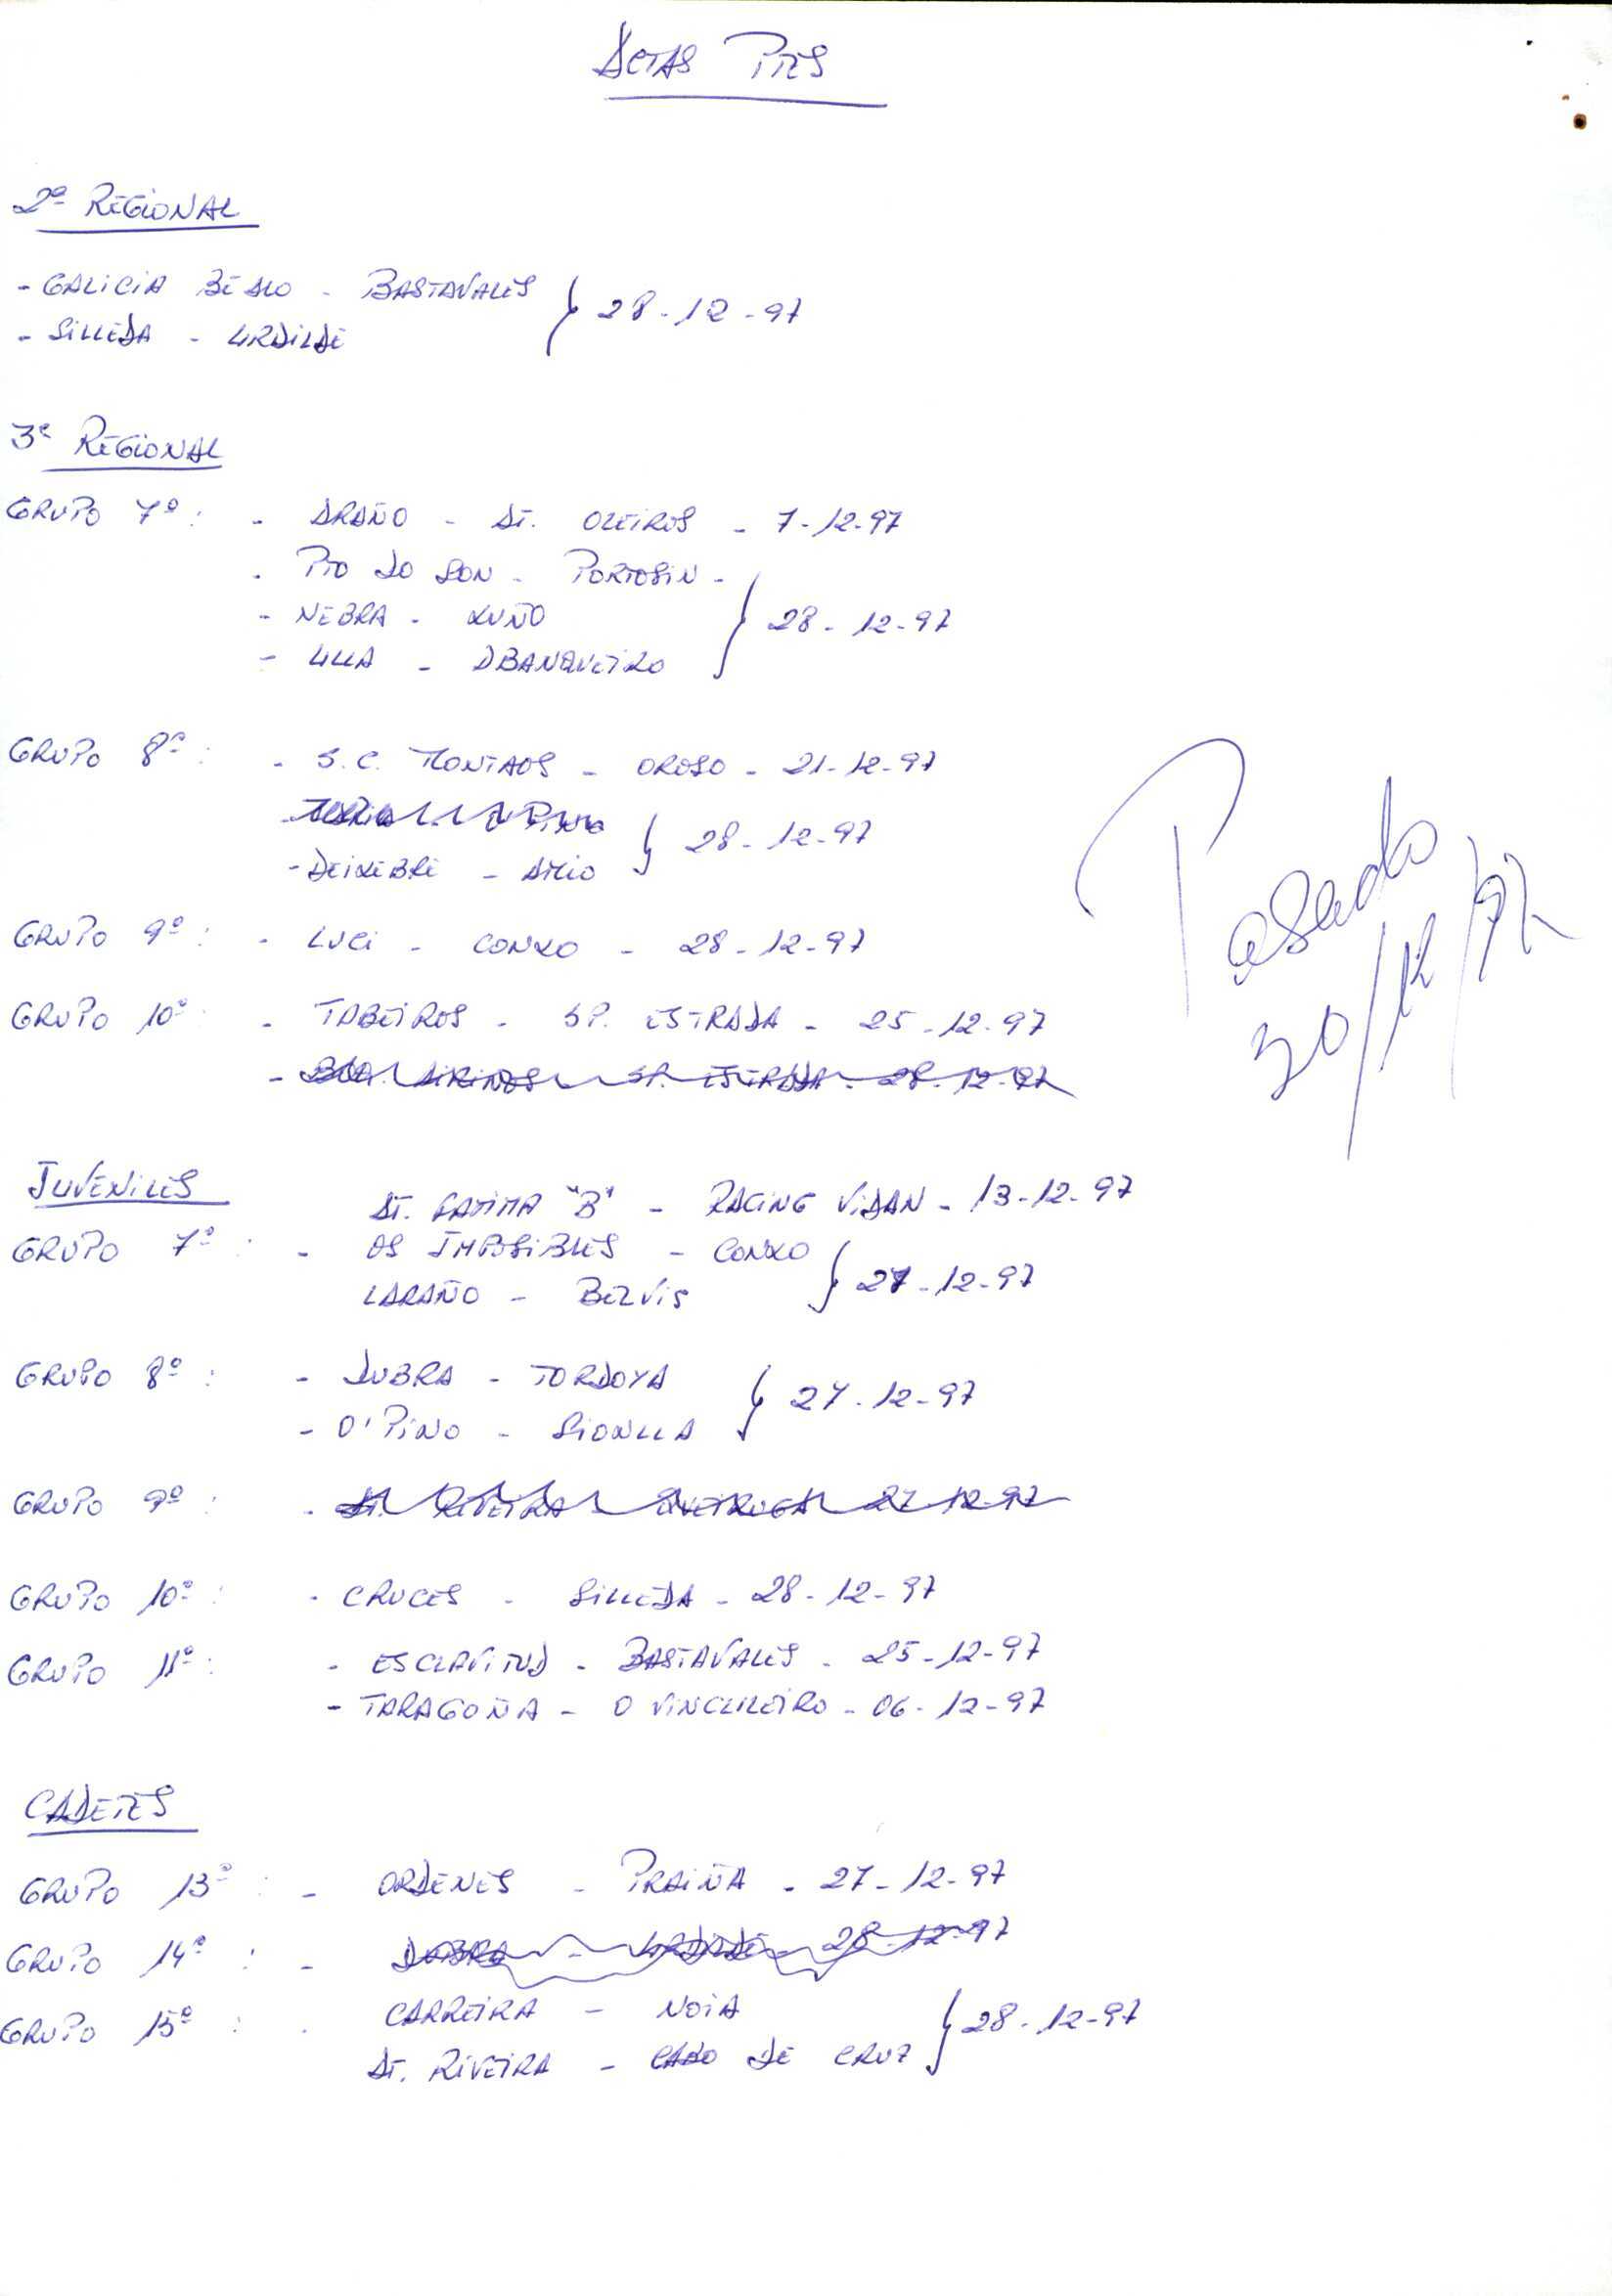 ACTAS PTES
2ª REGIONAL
- GALICIA BEALO - BASTAVALES
- SILLEDA - URDILDE } 28-12-97
3ª REGIONAL
GRUPO 7º : - ARAÑO - AT. OLEIROS - 7-12-97
- PTO DO SON - PORTOSIN -
- NEBRA - XUÑO } 28-12-97
- ULLA - ABANQUEIRO
GRUPO 8º : - S.C. MONTAOS - OROSO - 21-12-97
O PINO } 28-12-97
- DEIXEBRE - AMIO
GRUPO 9º : - LUCI - CONXO - 28-12-97
GRUPO 10º - TABEIROS - SP. ESTRADA - 25-12-97
- SP. ESTRADA - 28-12-97
Pasado
30/12/97
JUVENILES
AT. FATIMA "B" - RACING VIDAN - 13-12-97
GRUPO 7º : - OS IMPOSIBLES - CONXO
LARAÑO - BELVIS } 27-12-97
GRUPO 8º : - DUBRA - TORDOYA
- O'PINO - SIONLLA } 27-12-97
GRUPO 9º : - AT. RIVEIRA - OVEIRUGA 27-12-97
GRUPO 10º : - CRUCES - SILLEDA - 28-12-97
GRUPO 11º : - ESCLAVITUD - BASTAVALES - 25-12-97
- TARAGOÑA - O VINCULEIRO - 06-12-97
CADETES
GRUPO 13º : - ORDENES - PRAIÑA - 27-12-97
GRUPO 14º : - DUBRA - URDILDE - 28-12-97
GRUPO 15º : - CARREIRA - NOIA
AT. RIVEIRA - CABO DE CRUZ } 28-12-97